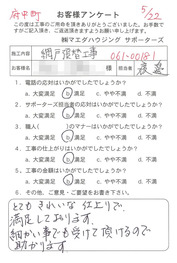 府中町
お客様アンケート
5/22
この度は工事のご用命を頂きありがとうございました。お手数で
すがご記入頂き、ご返送頂きますようお願い申し上げます。
㈱マエダハウジング サポーターズ
施工内容 網戸張替工事 061-00181
お名前 様 担当者 渡邉
1．電話の対応はいかがでしたでしょうか？
a．大変満足 b．満足 c．やや不満 d．不満
2．サポーターズ担当者の応対はいかがでしたでしょうか？
a．大変満足 b．満足 c．やや不満 d．不満
3．職人 の対応はいかがでしたでしょうか？
a．大変満足 b．満足 c．やや不満 d．不満
4．工事の仕上がりはいかがでしたでしょうか？
a．大変満足 b．満足 c．やや不満 d．不満
5．工事の金額はいかがでしたでしょうか？
a．大変満足 b．満足 c．やや不満 d．不満
6．その他、ご意見・ご要望をお書き下さい。
とてもきれいな仕上りで、
満足しております。
細かい事でも受けて頂けるので
助かります